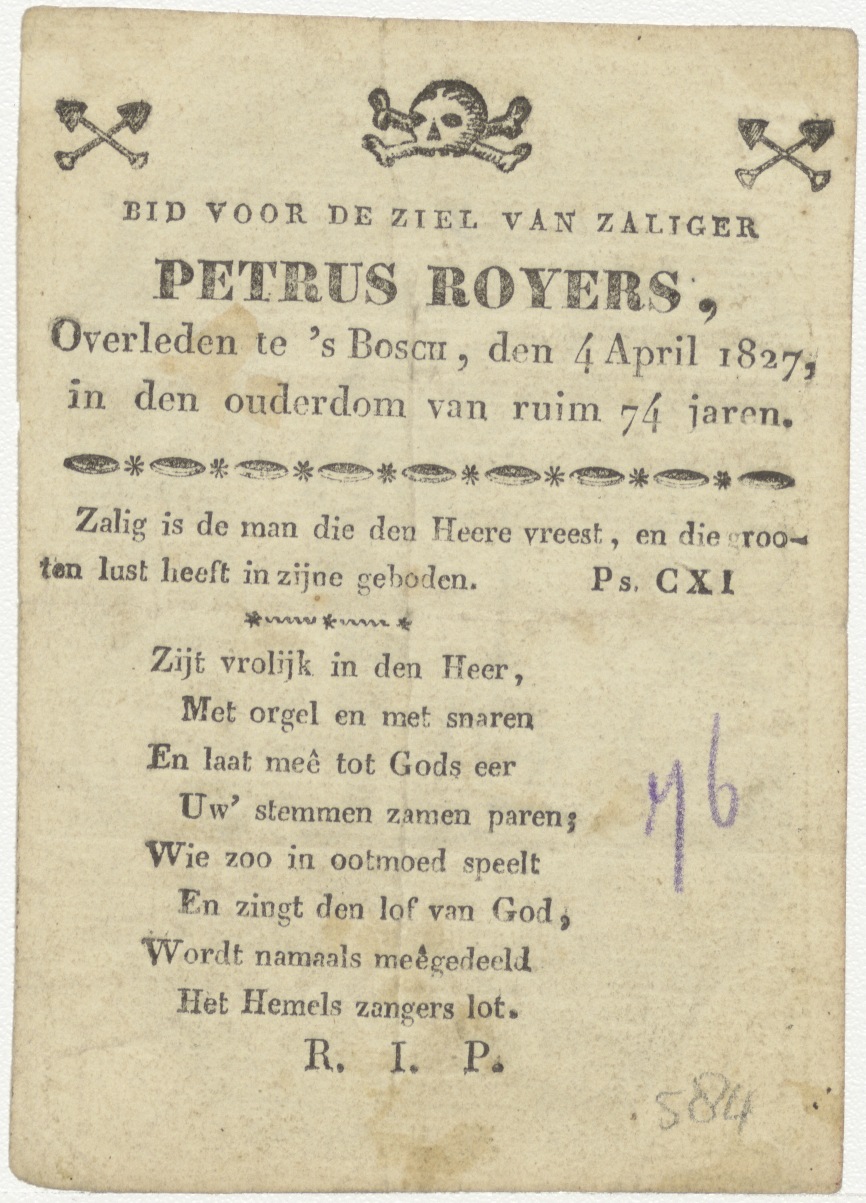 BID VOOR DE ZIEL VAN ZALIGER
PETRUS ROYERS,
Overleden te 's Bosch, den 4 April 1827,
in den ouderdom van ruim 74 jaren.
Zalig is de man die den Heere vreest, en die groo-
ten lust heeft in zijne geboden. Ps. CXI
Zijt vrolijk in den Heer,
Met orgel en met snaren
En laat meê tot Gods eer
Uw' stemmen zamen paren;
Wie zoo in ootmoed speelt
En zingt den lof van God,
Wordt namaals meêgedeeld
Het Hemels zangers lot.
R. I. P.
584